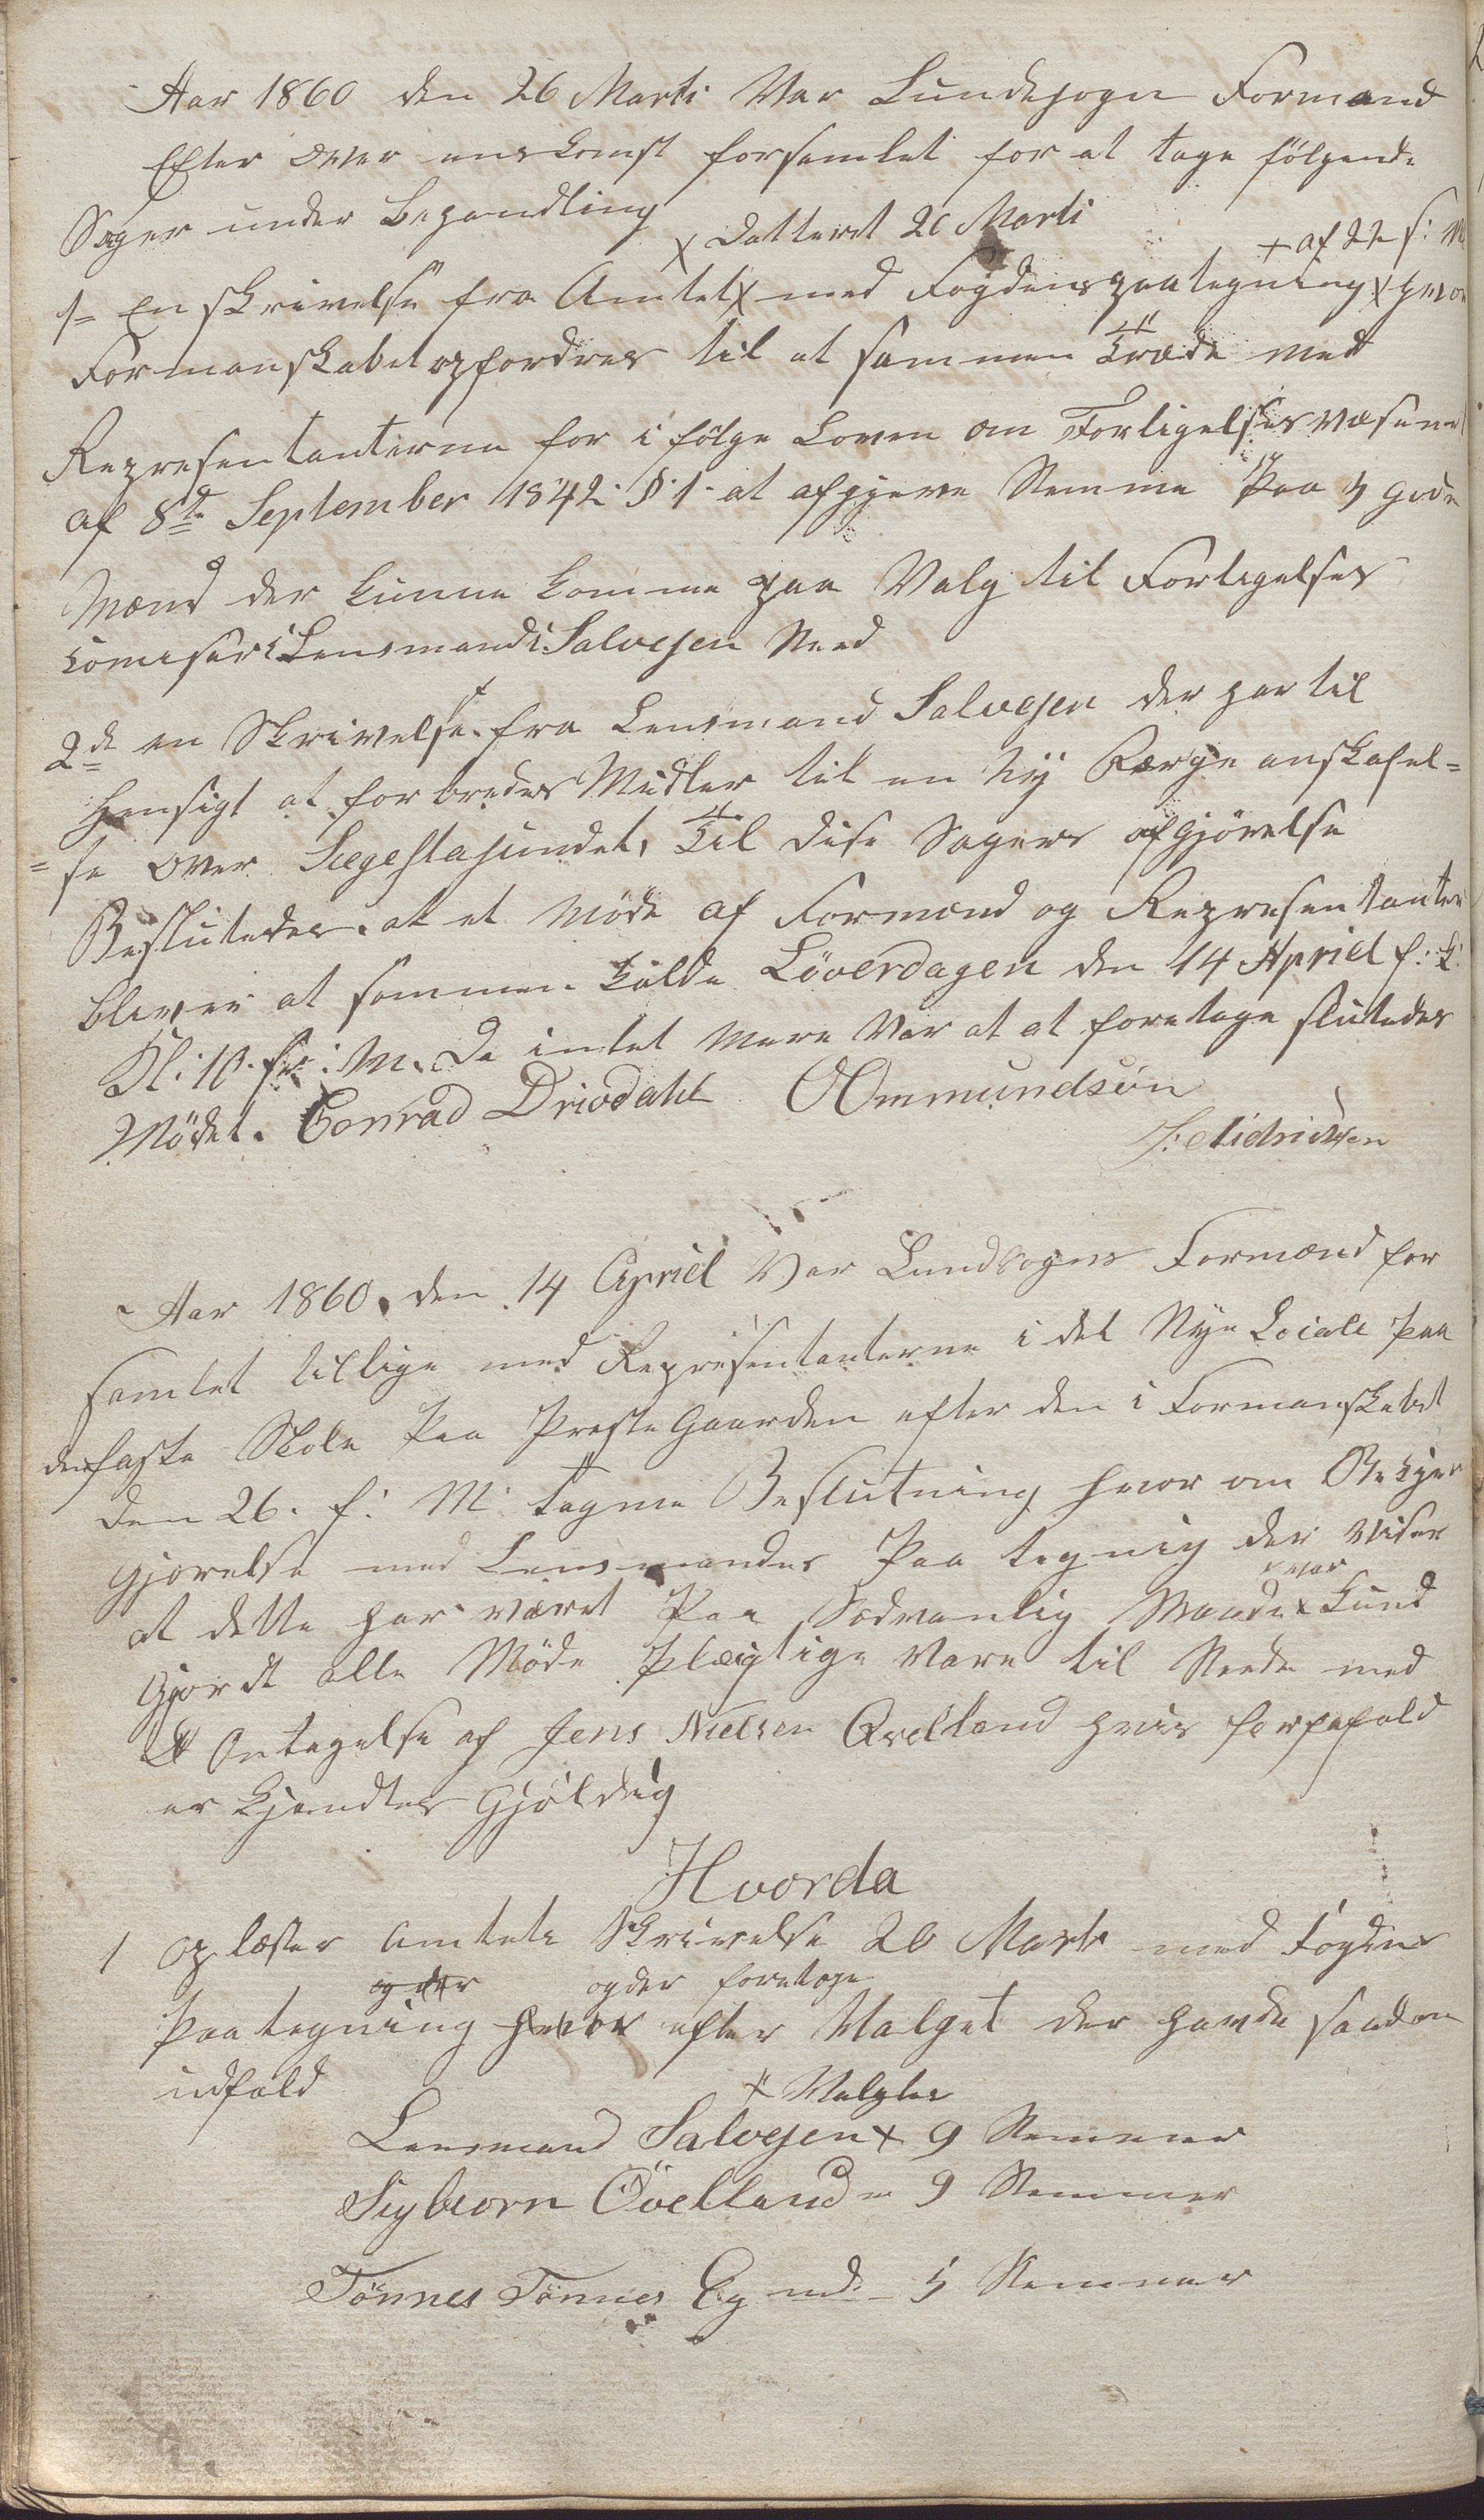 Aar 1860 den 26 Marti Var Lundesogn Formænd
Efter Over enskomst forsamlet for at tage følgende
Sager under Behandling
x Datteret 20 Marti
+ af 22 s: M
1= En skrivelse fra Amtet x med Fogdens paategning x hvor
Formanskabet opfordres til at sammen Træde med
Representanterne for i følge Loven om Forligelsesvæsenet
af 8de September 1842 § 1 at afgjeve Stemme Paa 3 gode
Mænd der kunne komme paa Valg til Forligelses
Comiser i Lensmand Salvesen Sted
2de en Skrivelse fra Lensmand Salvesen der har til
Hensigt at forberedes Midler til en Ny Færge anskafel=
=se over Sægestasundet, Til dise Sagers afgjørelse
Besluttedes at et Møde af Formænd og Representanter
bliver at sammen kalde Löverdagen den 14 Apriel f: k:
Kl: 10 for: M. Da intet Mere Var at at foretage sluttedes
Mødet. Conrad Drivdahl OOmmundsøn
Aar 1860 den 14 Apriel Var Lundsogns Formænd for
samlet tillige med Representanterne i det Nye Locale paa
den faste Skole Paa Preste Gaarden efter den i Formanskabet
den 26. f: M: tagne Beslutning hvor om Bekjen
gjørelse med Lensmandes Paa tegning der Viser
at dette har været Paa Sædvanlig Maade x Kund
x var
Gjordt alle Møde Plægtige Vare til Stede med
Untagelse af Jens Nielsen Qvelland hvis forfald
er kjendtes Gjøldig
Hvorda
1 Oplæstes Amtets Skrivelse 20 Marti med Fogdens
og der ogder foretoges
Paategning hvor efter Valget der havde saadan
udfald
x Valgtes
Lensmand Salvesen x 9 Stemmer
Sigbiorn Qvelland 9 Stemmer
Tönnes Tönnes Eg md - 5 Stemmer